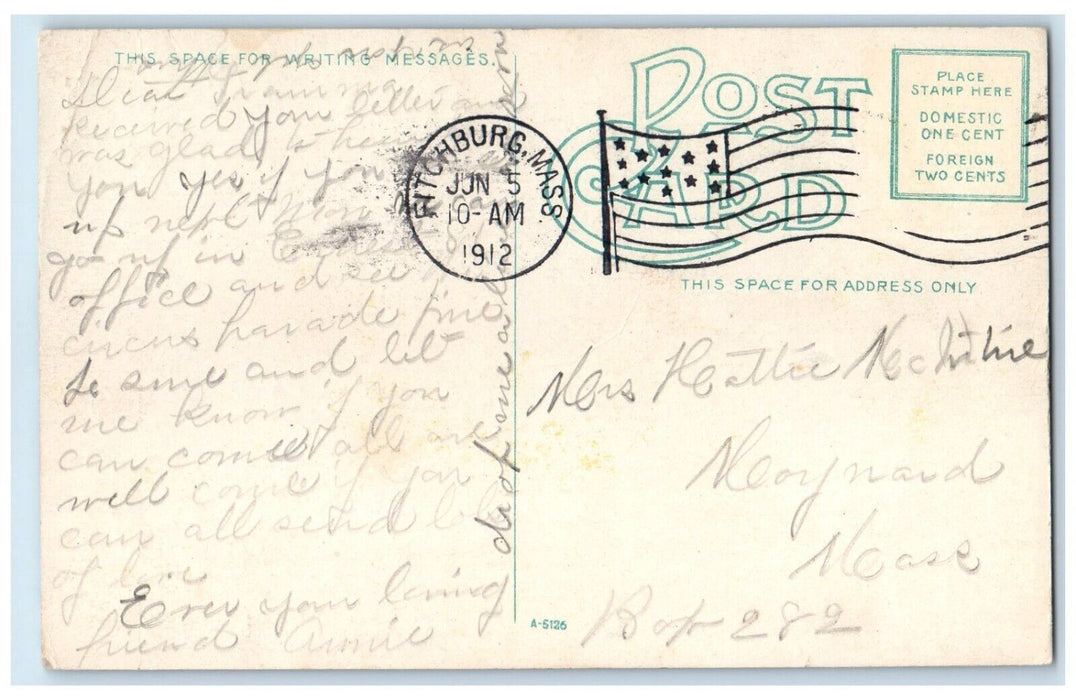 THIS SPACE FOR WRITING MESSAGES.
Dear
Received you letter and
was glad to hear
you yes if you
up next
go up in
office and see
circus parade fine
to sure and let
me know if you
can come all are
well come if you
can all send lots
of love
Ever your loving
friend Annie
drop me a
POST CARD
PLACE
STAMP HERE
DOMESTIC
ONE CENT
FOREIGN
TWO CENTS
FITCHBURG, MASS
JUN 5
10-AM
1912
THIS SPACE FOR ADDRESS ONLY
Mrs Hattie McIntire
Maynard
Mass
Box 282
A-5126